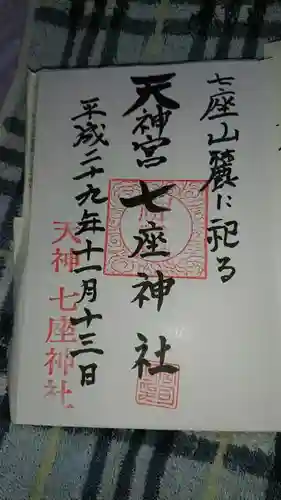 七座山麓に祀る
天神宮 七座神社
平成二十九年十一月十三日
天神 七座神社